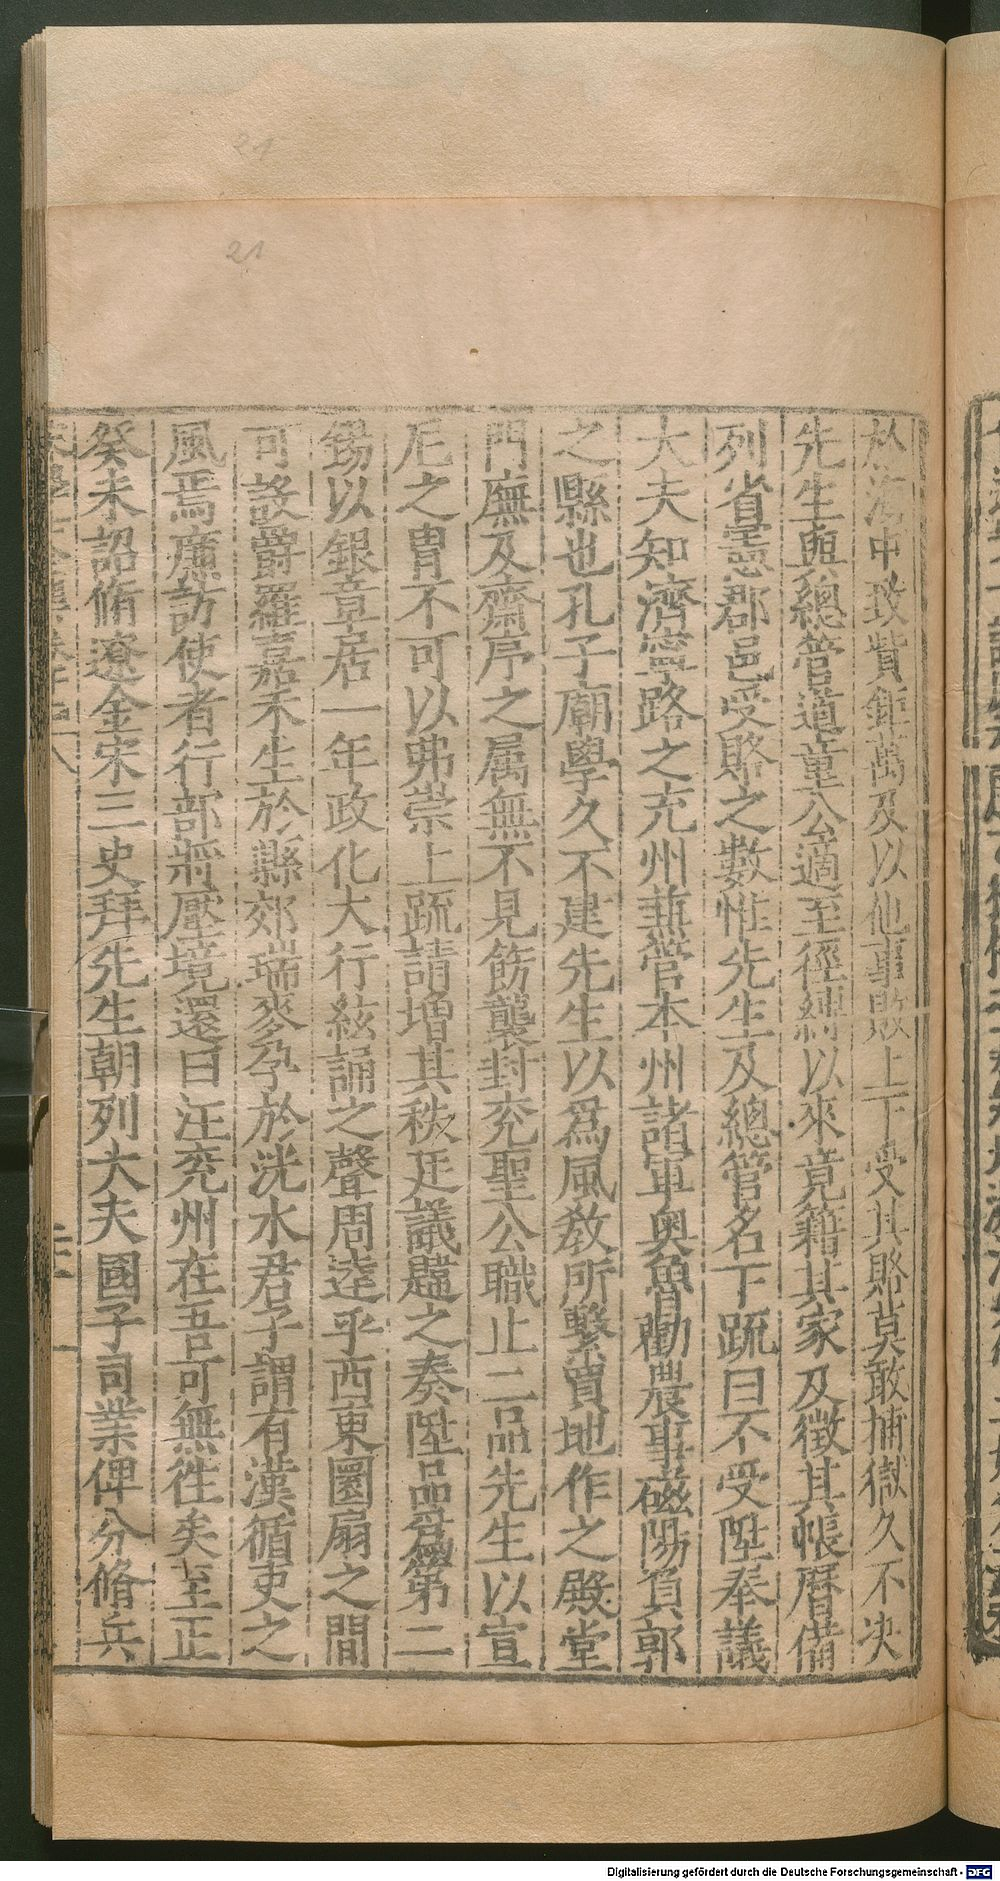 21
21
於海中致貲鉅萬及以他事敗上下受其賂莫敢捕獄久不决
先生與總管道童公適至徑縛以來竟籍其家及徵其帳曆備
列省憲郡邑受賂之數惟先生及總管名下疏曰不受陞奉議
大夫知濟寧路之兖州兼管本州諸軍奥魯勸農事磁陽負郭
之縣也孔子廟學久不建先生以爲風教所繫買地作之殿堂
門廡及齋序之属無不見飭襲封兖聖公職止二品先生以宣
尼之冑不可以弗崇上疏請增其秩廷議韙之奏陞品爲第二
錫以銀章居一年政化大行絃誦之聲周逵乎西東圜扇之間
可設爵羅嘉禾生於縣郊瑞麥孕於洸水君子謂有漢循吏之
風焉廉訪使者行部將壓境還曰汪兖州在吾可無徃矣至正
癸未詔脩遼金宋三史拜先生朝列大夫國子司業俾分脩兵
Digitalisierung gefördert durch die Deutsche Forschungsgemeinschaft - DFG